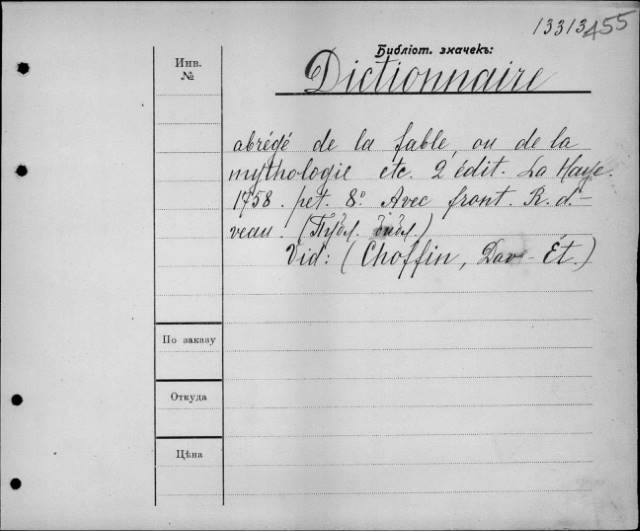 13313455
Библіот. значекъ:
Инв.
№
Dictionnaire
abrégé de la fable, ou de la
mythologie etc. 2 édit. La Haye.
1758. pet. 8º. Avec front. R. d.-
veau. (Публ. библ.)
Vid: (Choffin, Dav- Ét.)
По заказу
Откуда
Цѣна